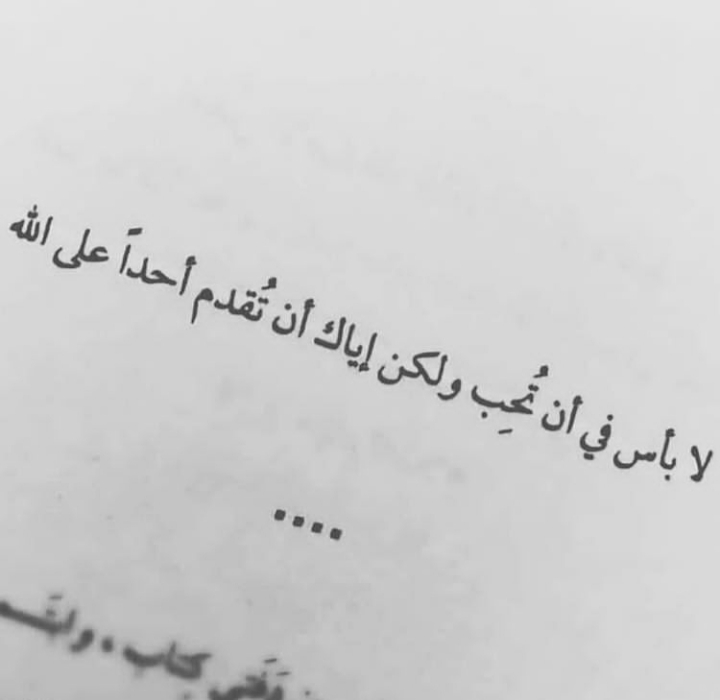 لا بأس في أن تُحِب ولكن إياك أن تُقدم أحداً على الله
....
كتاب ،